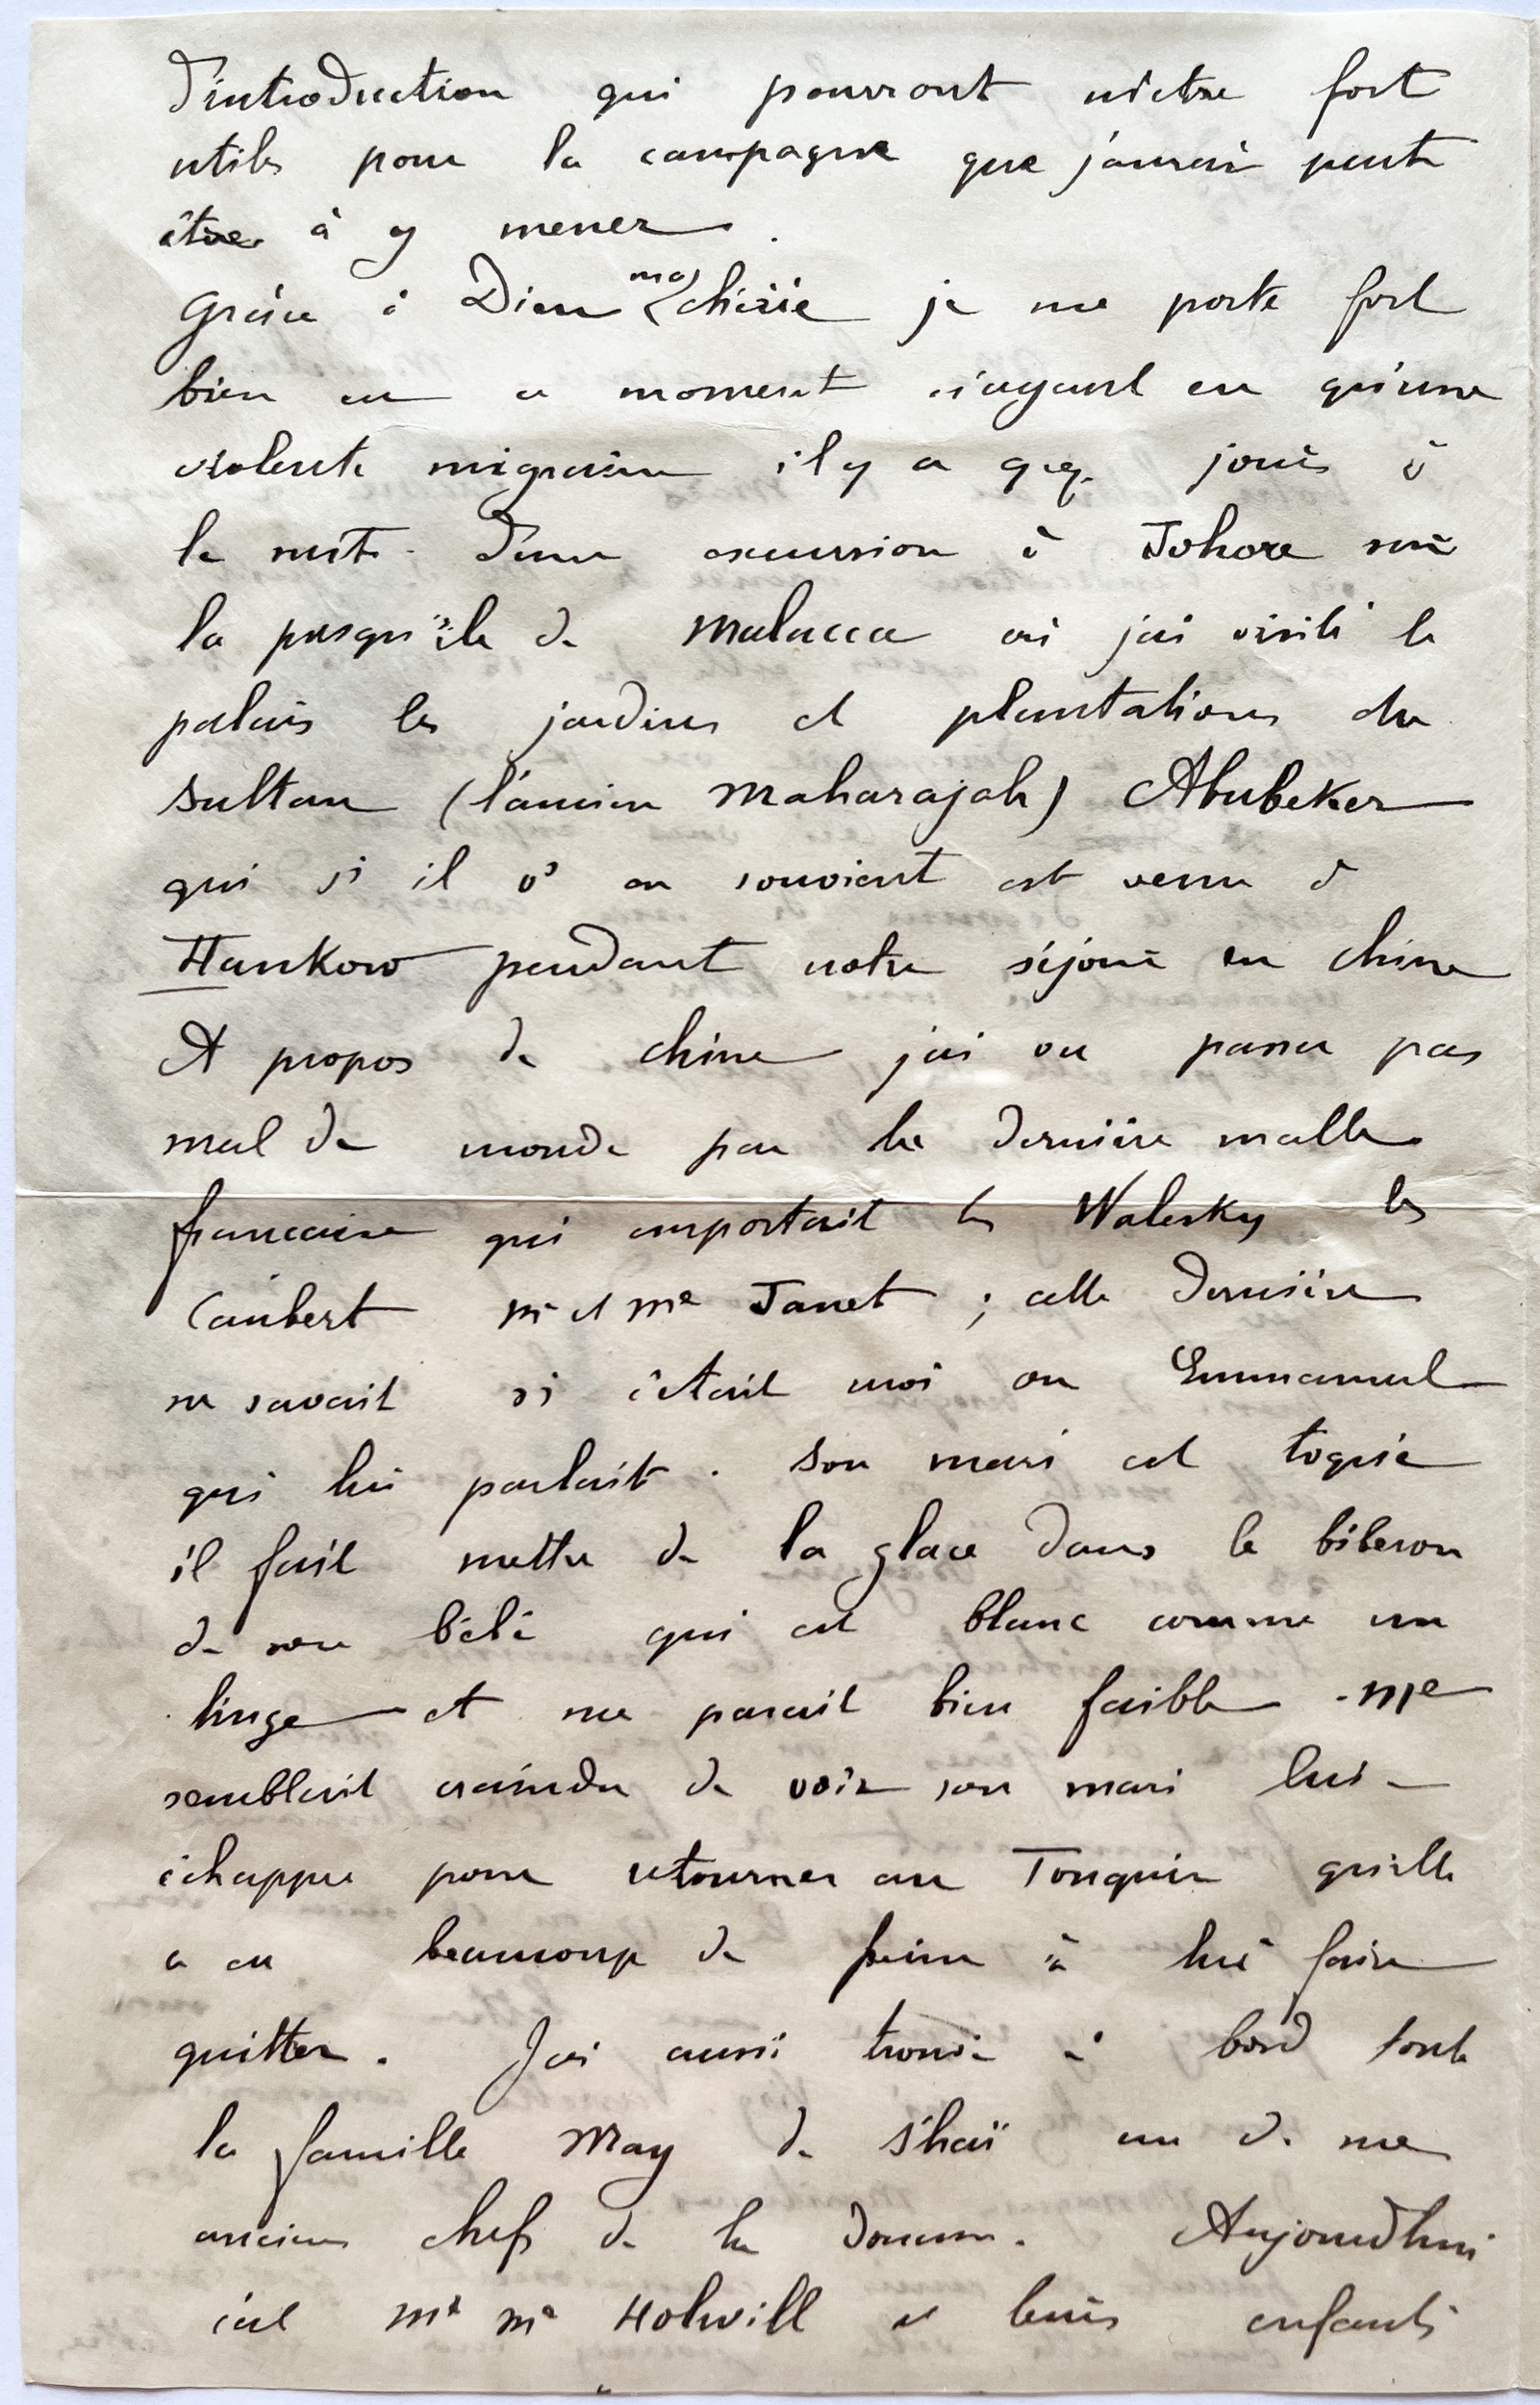 d'introduction qui pourront m'être fort
utiles pour la campagne que j'aurai peut
être à y mener.
Grâce à Dieu ma chérie je me porte fort
bien en ce moment n'ayant eu qu'une
violente migraine il y a qq. jours à
la suite d'une excursion à Johore sur
la presqu'île de Malacca où j'ai visité le
palais les jardins et plantations du
Sultan (l'ancien Maharajah) Abubeker
qui si il s'en souvient est venu à
Hankow pendant notre séjour en Chine
A propos de Chine j'ai vu passer pas
mal de monde par la dernière malle
française qui emportait les Walesky les
Caubert Mr et Me Janet ; cette dernière
ne savait si c'était moi ou Emmanuel
qui lui parlait. Son mari est toqué
il fait mettre de la glace dans le biberon
de son bébé qui est blanc comme un
linge et me parait bien faible. Me
semblait craindre de voir son mari lui
échapper pour retourner au Tonquin qu'elle
a eu beaucoup de peine à lui faire
quitter. J'ai aussi trouvé à bord toute
la famille May de S'haï un de mes
anciens chefs de la Douane. Aujourd'hui
c'est Mr Me Holwill et leurs enfants